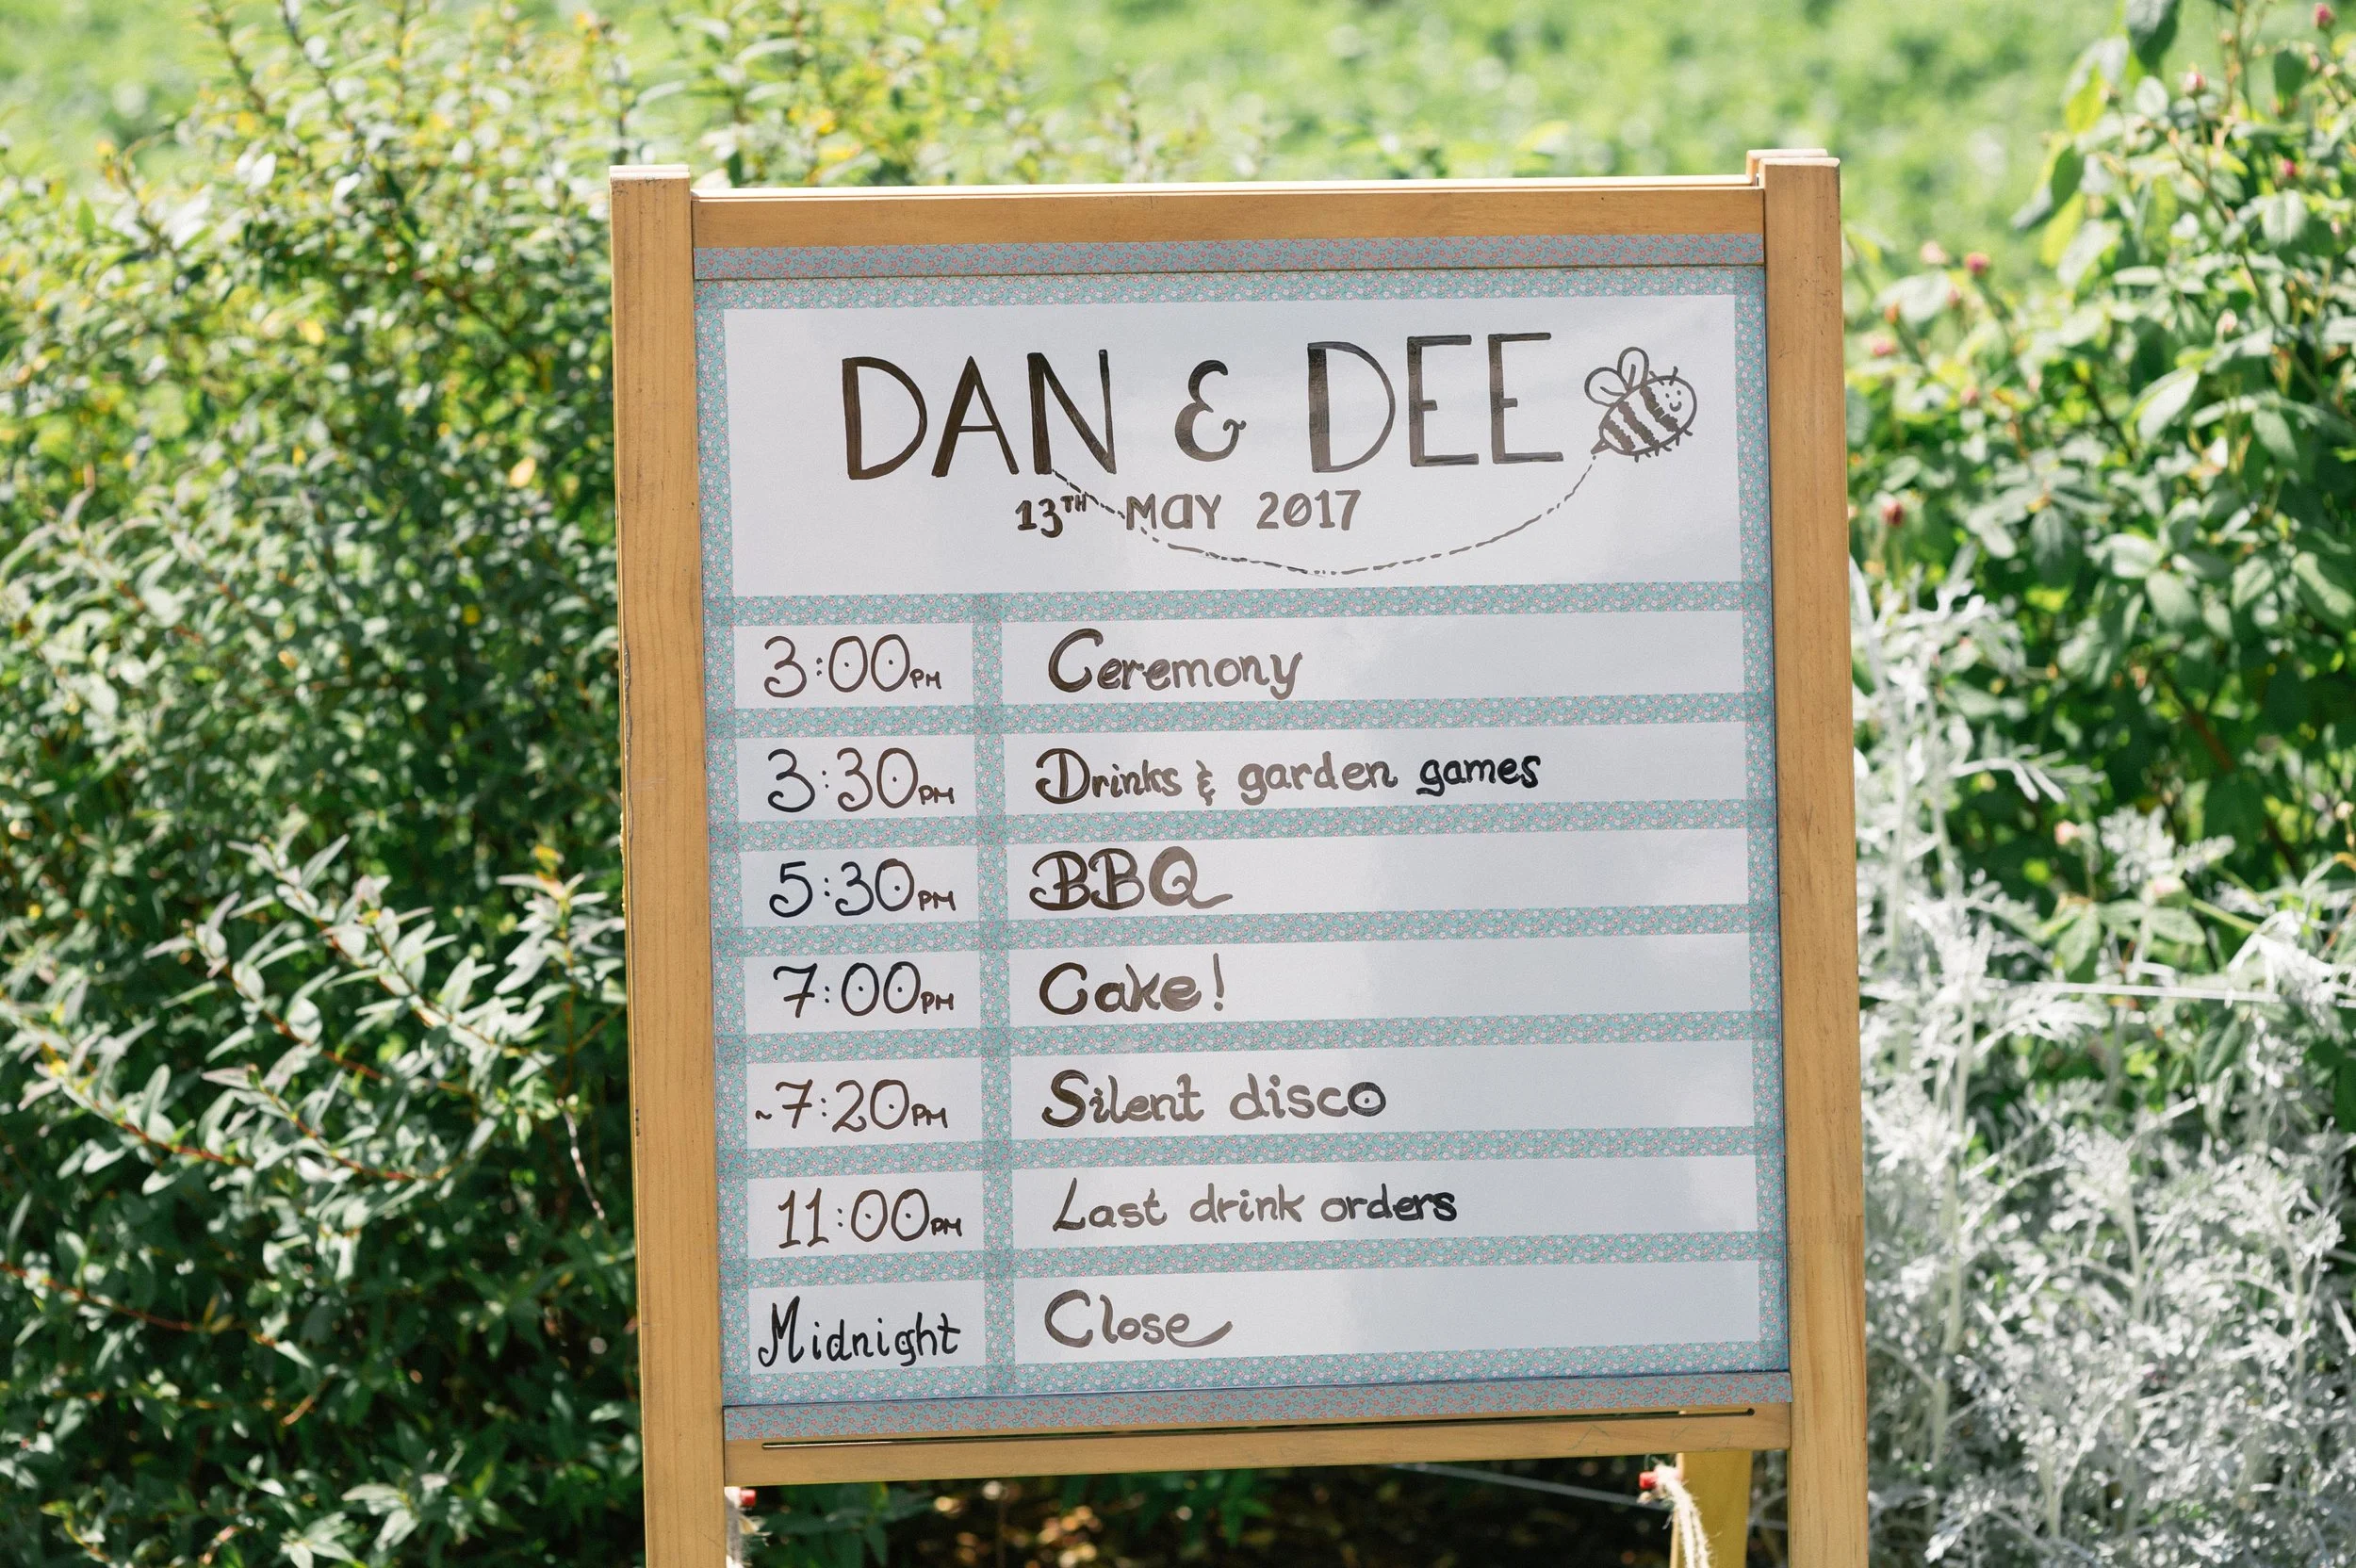 DAN & DEE
13TH MAY 2017
3:00PM Ceremony
3:30PM Drinks & garden games
5:30PM BBQ
7:00PM Cake!
~7:20PM Silent disco
11:00PM Last drink orders
Midnight Close